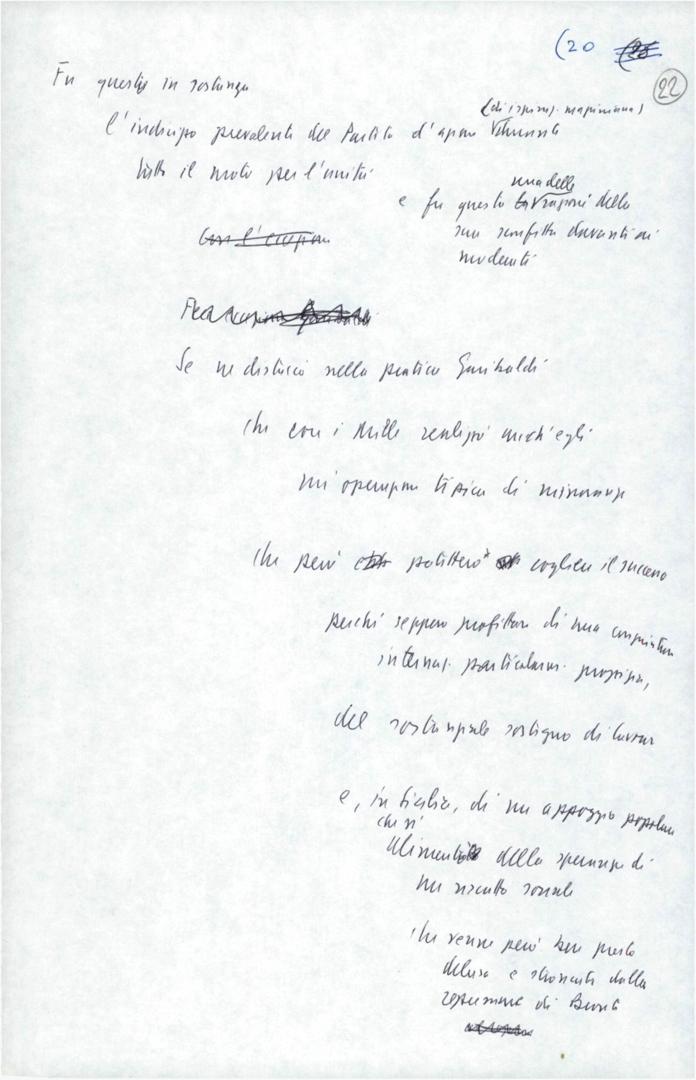 (20
22
Fu questo in sostanza
(di ispiraz. mazziniana)
l'indirizzo prevalente del Partito d'azione durante
tutto il moto per l'unità
una delle
e fu questo ragioni della
sua sconfitta davanti ai
moderati
Se ne distaccò nella pratica Garibaldi
che con i Mille realizzò anch'egli
un'operazione tipica di minoranza
che però potettero cogliere il successo
perché seppero profittare di una congiuntura
internaz. particolarm. propizia,
del sostanziale sostegno di Cavour
e, in Sicilia, di un appoggio popolare
che si
alimentò della speranza di
un riscatto sociale
che venne però ben presto
delusa e stroncata dalla
repressione di Bronte